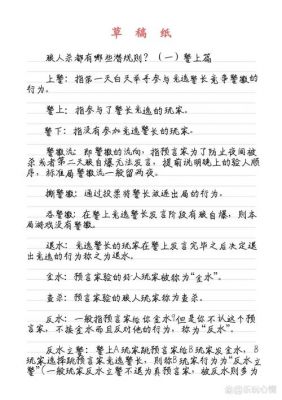 草 稿 纸
狼人杀都有哪些潜规则？（一）警上篇
上警：指第一天白天举手竞选警长竞争警徽的
行为。
警上：指参与了警长竞选的玩家。
警下：指没有参加竞选警长的玩家。
警徽流：即警徽的流向，指预言家为了防止夜间被
杀或者第二天被自爆无法发言，提前说明晚上的验人顺
序，标准局警徽流一般留两夜。
撕警徽：通过投票将警长放逐出局的行为。
吞警徽：在警上竞选警长发言阶段有狼自爆，则本
局游戏没有警徽。
退水：竞选警长的玩家在警上发言完毕之后决定退
出竞选的行为称之为退水。
金水：预言家验的好人玩家被称为“金水”。
查杀：预言家验的狼人玩家称为查杀。
反水：一般指预言家给你金水？但是你不认这个预
言家，不接金水而且反对他的行为，称为“反水”。
反水立警：警上A玩家跳预言家给B玩家发金水，B
玩家选择跳预言家竞选警长，则称B玩家行为为“反水立
警”（一般玩家反水立警不退为真预言家，被反水则多为
@乐玩心情